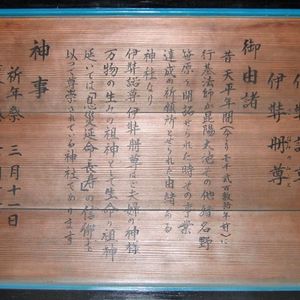 伊弉諾尊
伊弉冊尊
御由諸
昔天平年間(今より壱千弐百数拾年好)に
行基法師が昆陽大池その他猪名野
笹原を開拓せられた時その事業
達成の祈願所とせられた由緒ある
神社なり
伊弉諾尊 伊弉冊尊はご夫婦の神様
万物の生みの祖神として生命の祖神
延いては「息災延命・長寿」の信仰を
以って尊崇されている神社であります
神事
祈年祭 三月十一日